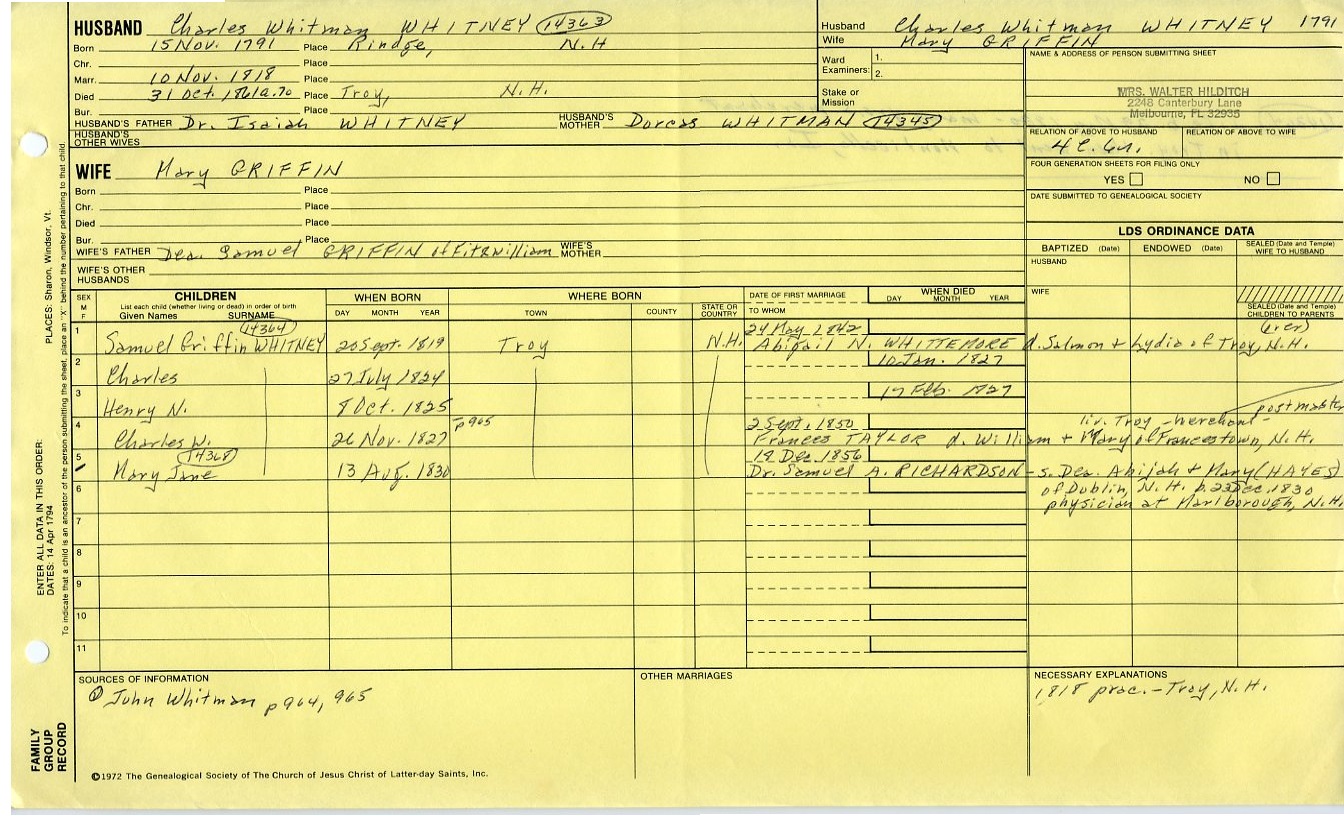 HUSBAND Charles Whitman WHITNEY 14363
Born 15 Nov. 1791 Place Rindge, N.H
Chr. Place
Marr. 10 Nov. 1818 Place
Died 31 Oct. 1861 a.70 Place Troy, N.H.
Bur. Place
HUSBAND'S FATHER Dr. Isaiah WHITNEY HUSBAND'S MOTHER Dorcas WHITMAN 14345
HUSBAND'S OTHER WIVES
WIFE Mary GRIFFIN
Born Place
Chr. Place
Died Place
Bur. Place
WIFE'S FATHER Dea. Samuel GRIFFIN of Fitzwilliam WIFE'S MOTHER
WIFE'S OTHER HUSBANDS
Husband Charles Whitman WHITNEY 1791
Wife Mary GRIFFIN
Ward Examiners: 1.
2.
Stake or Mission
NAME & ADDRESS OF PERSON SUBMITTING SHEET
MRS. WALTER HILDITCH
2248 Canterbury Lane
Melbourne, FL 32935
RELATION OF ABOVE TO HUSBAND RELATION OF ABOVE TO WIFE
4 C.
FOUR GENERATION SHEETS FOR FILING ONLY
YES NO
DATE SUBMITTED TO GENEALOGICAL SOCIETY
LDS ORDINANCE DATA
BAPTIZED (Date) ENDOWED (Date) SEALED (Date and Temple) WIFE TO HUSBAND
HUSBAND
WIFE
SEALED (Date and Temple) CHILDREN TO PARENTS
SEX M F
CHILDREN
List each child (whether living or dead) in order of birth
Given Names SURNAME
WHEN BORN
DAY MONTH YEAR
WHERE BORN
TOWN COUNTY STATE OR COUNTRY
DATE OF FIRST MARRIAGE
TO WHOM
WHEN DIED
DAY MONTH YEAR
1 14364 24 May 1842
Samuel Griffin WHITNEY 20 Sept. 1819 Troy N.H. Abigail N. WHITTEMORE d. Salmon & Lydia of Troy, N.H.
2 10 Jan. 1827
Charles 27 July 1824
3 17 Feb. 1827
Henry N. 8 Oct. 1825
postmaster
4 p965 2 Sept. 1850 liv. Troy - merchant -
Charles W. 26 Nov. 1827 Frances TAYLOR d. William & Mary of Francestown, N.H.
5 14368 Dec. 1856
Mary Jane 13 Aug. 1830 Dr. Samuel A. RICHARDSON - s. Dea. Abijah & Mary (HAYES)
of Dublin, N.H. b. 23 Dec. 1830
physician at Marlborough, N.H.
6
7
8
9
10
11
SOURCES OF INFORMATION
① John Whitman p964, 965
OTHER MARRIAGES
NECESSARY EXPLANATIONS
1818 proc. - Troy, N.H.
©1972 The Genealogical Society of The Church of Jesus Christ of Latter-day Saints, Inc.
FAMILY GROUP RECORD
ENTER ALL DATA IN THIS ORDER:
DATES: 14 Apr 1794
PLACES: Sharon, Windsor, Vt.
To indicate that a child is an ancestor of the person submitting the sheet, place an "X" behind the number pertaining to that child.